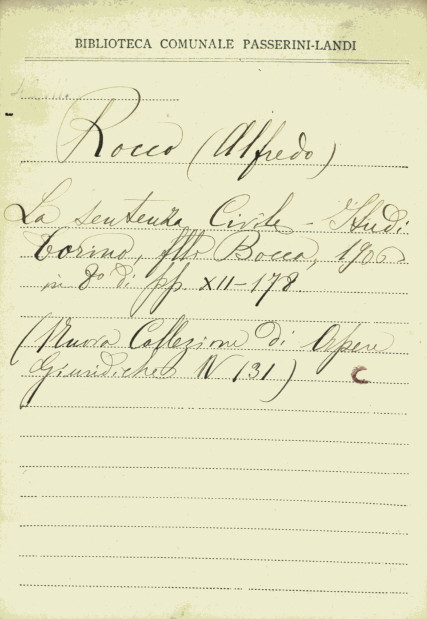 BIBLIOTECA COMUNALE PASSERINI-LANDI
Rocco (Alfredo)
La sentenza Civile - Studi.
Torino, flli Bocca, 1906
in 8º di pp. XII-178.
(Nuova Collezione di Opere
Giuridiche N 131)
C